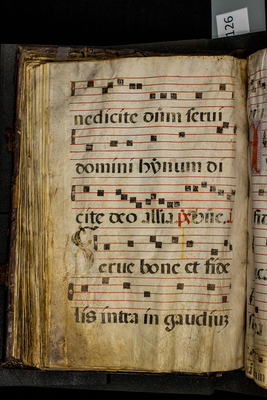 126
nedicite dnm serui
domini hymnum di
cite deo allia ps bñe.
Serue bone et fide
lis intra in gaudiuz